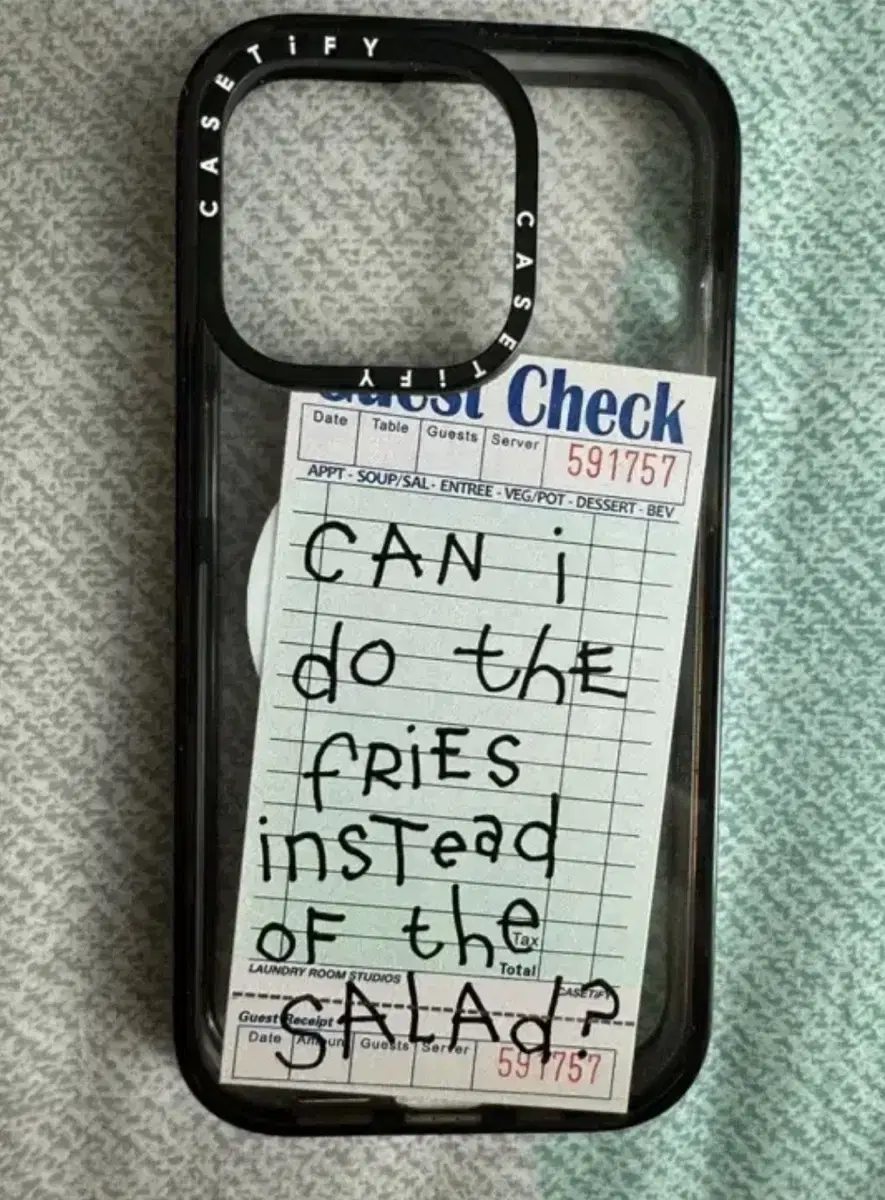 CASETiFY
CASETiFY
Guest Check
Date Table Guests Server 591757
APPT - SOUP/SAL - ENTREE - VEG/POT - DESSERT - BEV
CAN i
do thE
fRiES
insTead
OF the
Tax
Total
LAUNDRY ROOM STUDIOS CASETiFY
SALAd?
Guest Receipt
Date Amount Guests Server 591757